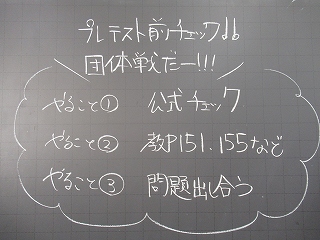 プレテスト前チェック♪♪
団体戦だー!!!
やること① 公式チェック
やること② 教P151.155など
やること③ 問題出し合う